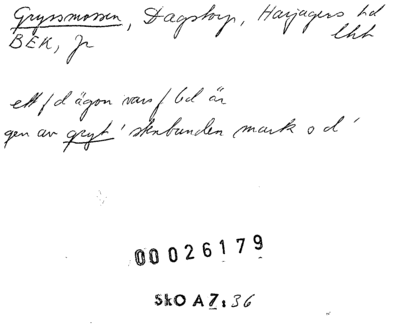 Gryssmossen, Dagstorp, Harjagers hd
lht
BEK, Jr
ett fd ägonamn vars fbd är
gen av gryt 'stenbunden mark o d'
00026179
SkO A7:36